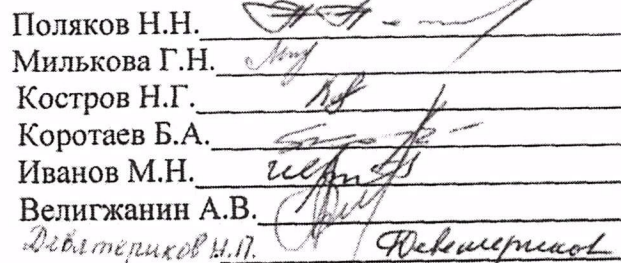 Поляков Н.Н.
Милькова Г.Н.
Костров Н.Г.
Коротаев Б.А.
Иванов М.Н.
Велигжанин А.В.
Девятериков Н.П.